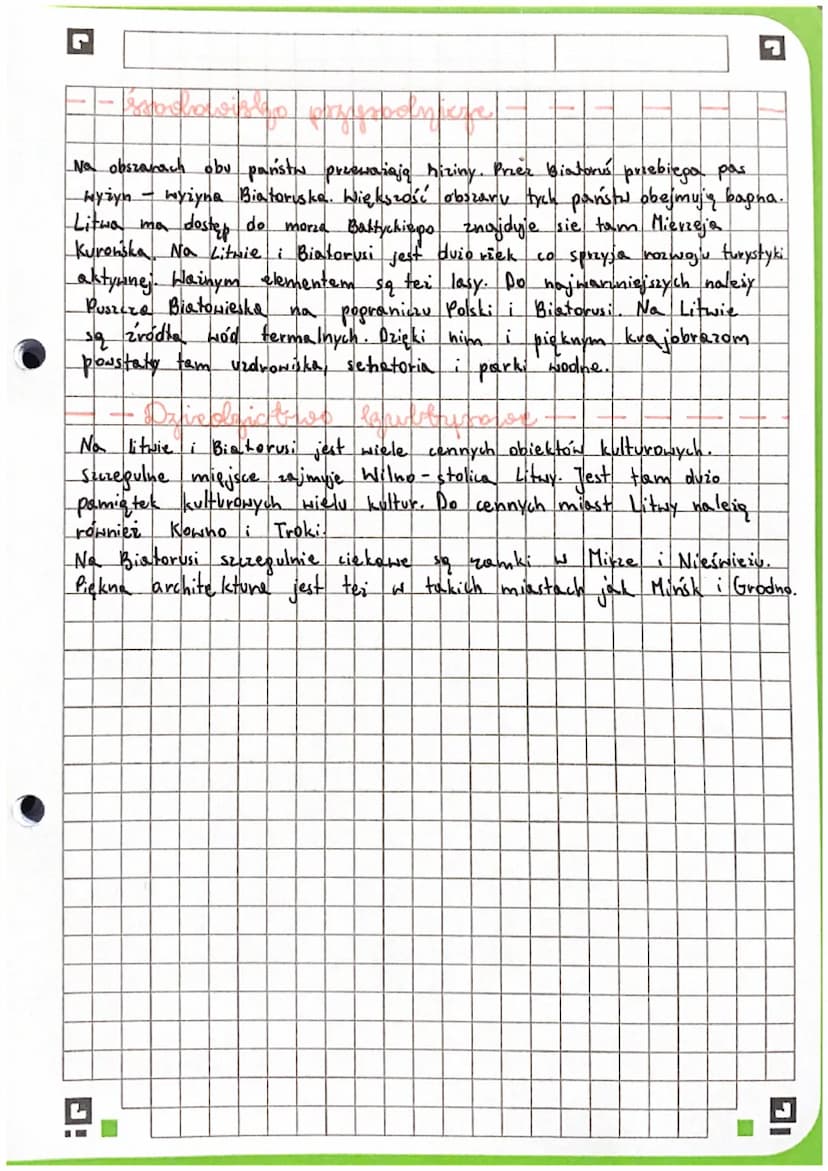 - - środowisko przyrodnicze - - - - - -
Na obszarach obu państw przeważają niziny. Przez Białoruś przebiega pas
wyżyn - wyżyna Białoruska. Większość obszaru tych państw obejmują bagna.
Litwa ma dostęp do morza Bałtyckiego znajduje sie tam Mierzeja
Kurońska. Na Litwie i Białorusi jest dużo rzek co sprzyja rozwoju turystyki
aktywnej. Ważnym elementem są też lasy. Do najważniejszych należy
Puszcza Białowieska na pograniczu Polski i Białorusi. Na Litwie
są źródła wód termalnych. Dzięki nim i pięknym krajobrazom
powstały tam uzdrowiska, senatoria i parki wodne.
- - Dziedzictwo kulturowe - - - - - -
Na litwie i Białorusi jest wiele cennych obiektów kulturowych.
Szczegulne miejsce zajmuje Wilno - stolica Litwy. Jest tam dużo
pamiątek kulturowych wielu kultur. Do cennych miast Litwy należą
również Kowno i Troki.
Na Białorusi szczegulnie ciekawe są zamki w Mirze i Nieświeżu.
Piękna architektura jest też w takich miastach jak Mińsk i Grodno.